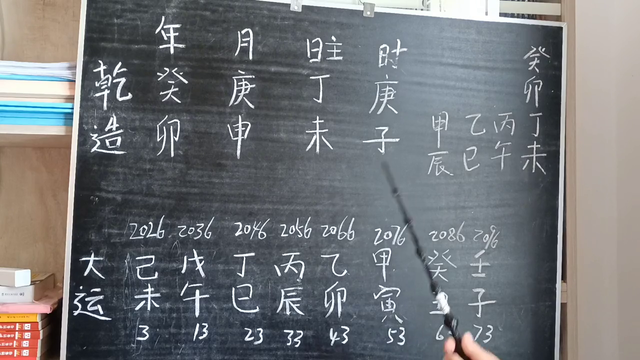 年 月 日主 时
乾 癸 庚 丁 庚
造 卯 申 未 子
癸
卯
甲 乙 丙 丁
辰 巳 午 未
2026 2036 2046 2056 2066 2076 2086 2096
大 己 戊 丁 丙 乙 甲 癸 壬
运 未 午 巳 辰 卯 寅 子
3 13 23 33 43 53 6 73